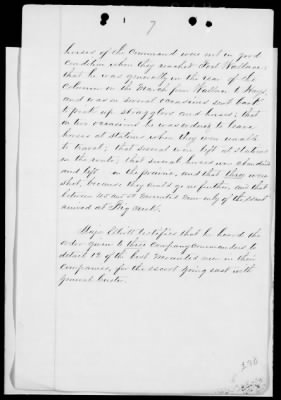 7
horses of the command were not in good
condition when they reached Fort Wallace;
that he was generally in the rear of the
column on the march from Wallace to Hays,
and was on several occasions sent back
to pick up stragglers and horses; that
on two occasions he was ordered to leave
horses at stations when they were unable
to travel; that several were left at stations
on the route; that several horses were abandoned
and left on the prairie, and that they were
shot, because they could go no further, and that
between 45 and 50 mounted men only of the escort
arrived at Big Creek.
Major Elliott testifies that he heard the
order given to three company commanders to
detail 12 of the best mounted men in their
companies, for the escort going east with
General Custer.